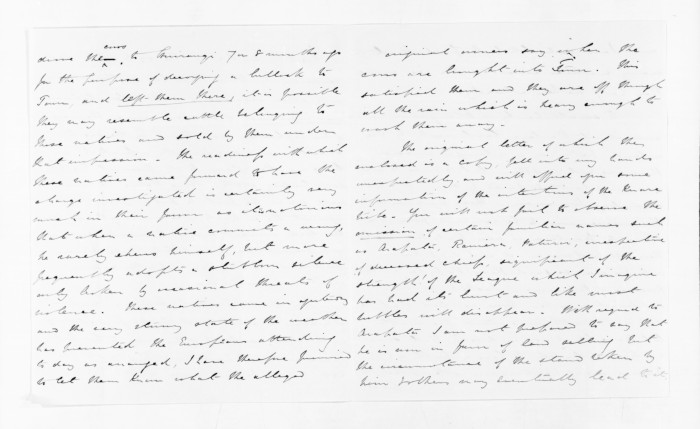 drove the cows to Thurangi 7 or 8 months ago
for the purpose of decoying a bullock to
Town, and left them there, it is possible
they may resemble cattle belonging to
these natives and sold by them under
that impression. The readiness with which
these natives came forward to have the
charge investigated is certainly very
much in their favor as it is notorious
that when a native commits a wrong,
he rarely shews himself, but more
frequently adopts a stubborn silence
only broken by occasional threats of
violence. These natives came in yesterday
and the very stormy state of the weather
has prevented the Europeans attending
to day as arranged, I have therefore promised
to let them know what the alleged
original owners say when the
cows are brought into Town. This
satisfied them and they are off through
all the rain which is heavy enough to
wash them away.
The original letter of which the
enclosed is a copy fell into my hands
unexpectedly and will afford you some
information of the intentions of the
tribe. You will not fail to observe the
omission of certain familiar names such
as irrespective
of deceased chiefs, significant of the
strength of the League which I imagine
has had its burst and like most
bubbles will disappear. With regard to
I am not prepared to say that
he is now in favor of land selling but
the circumstance of the stand taken by
him & others may eventually lead to it